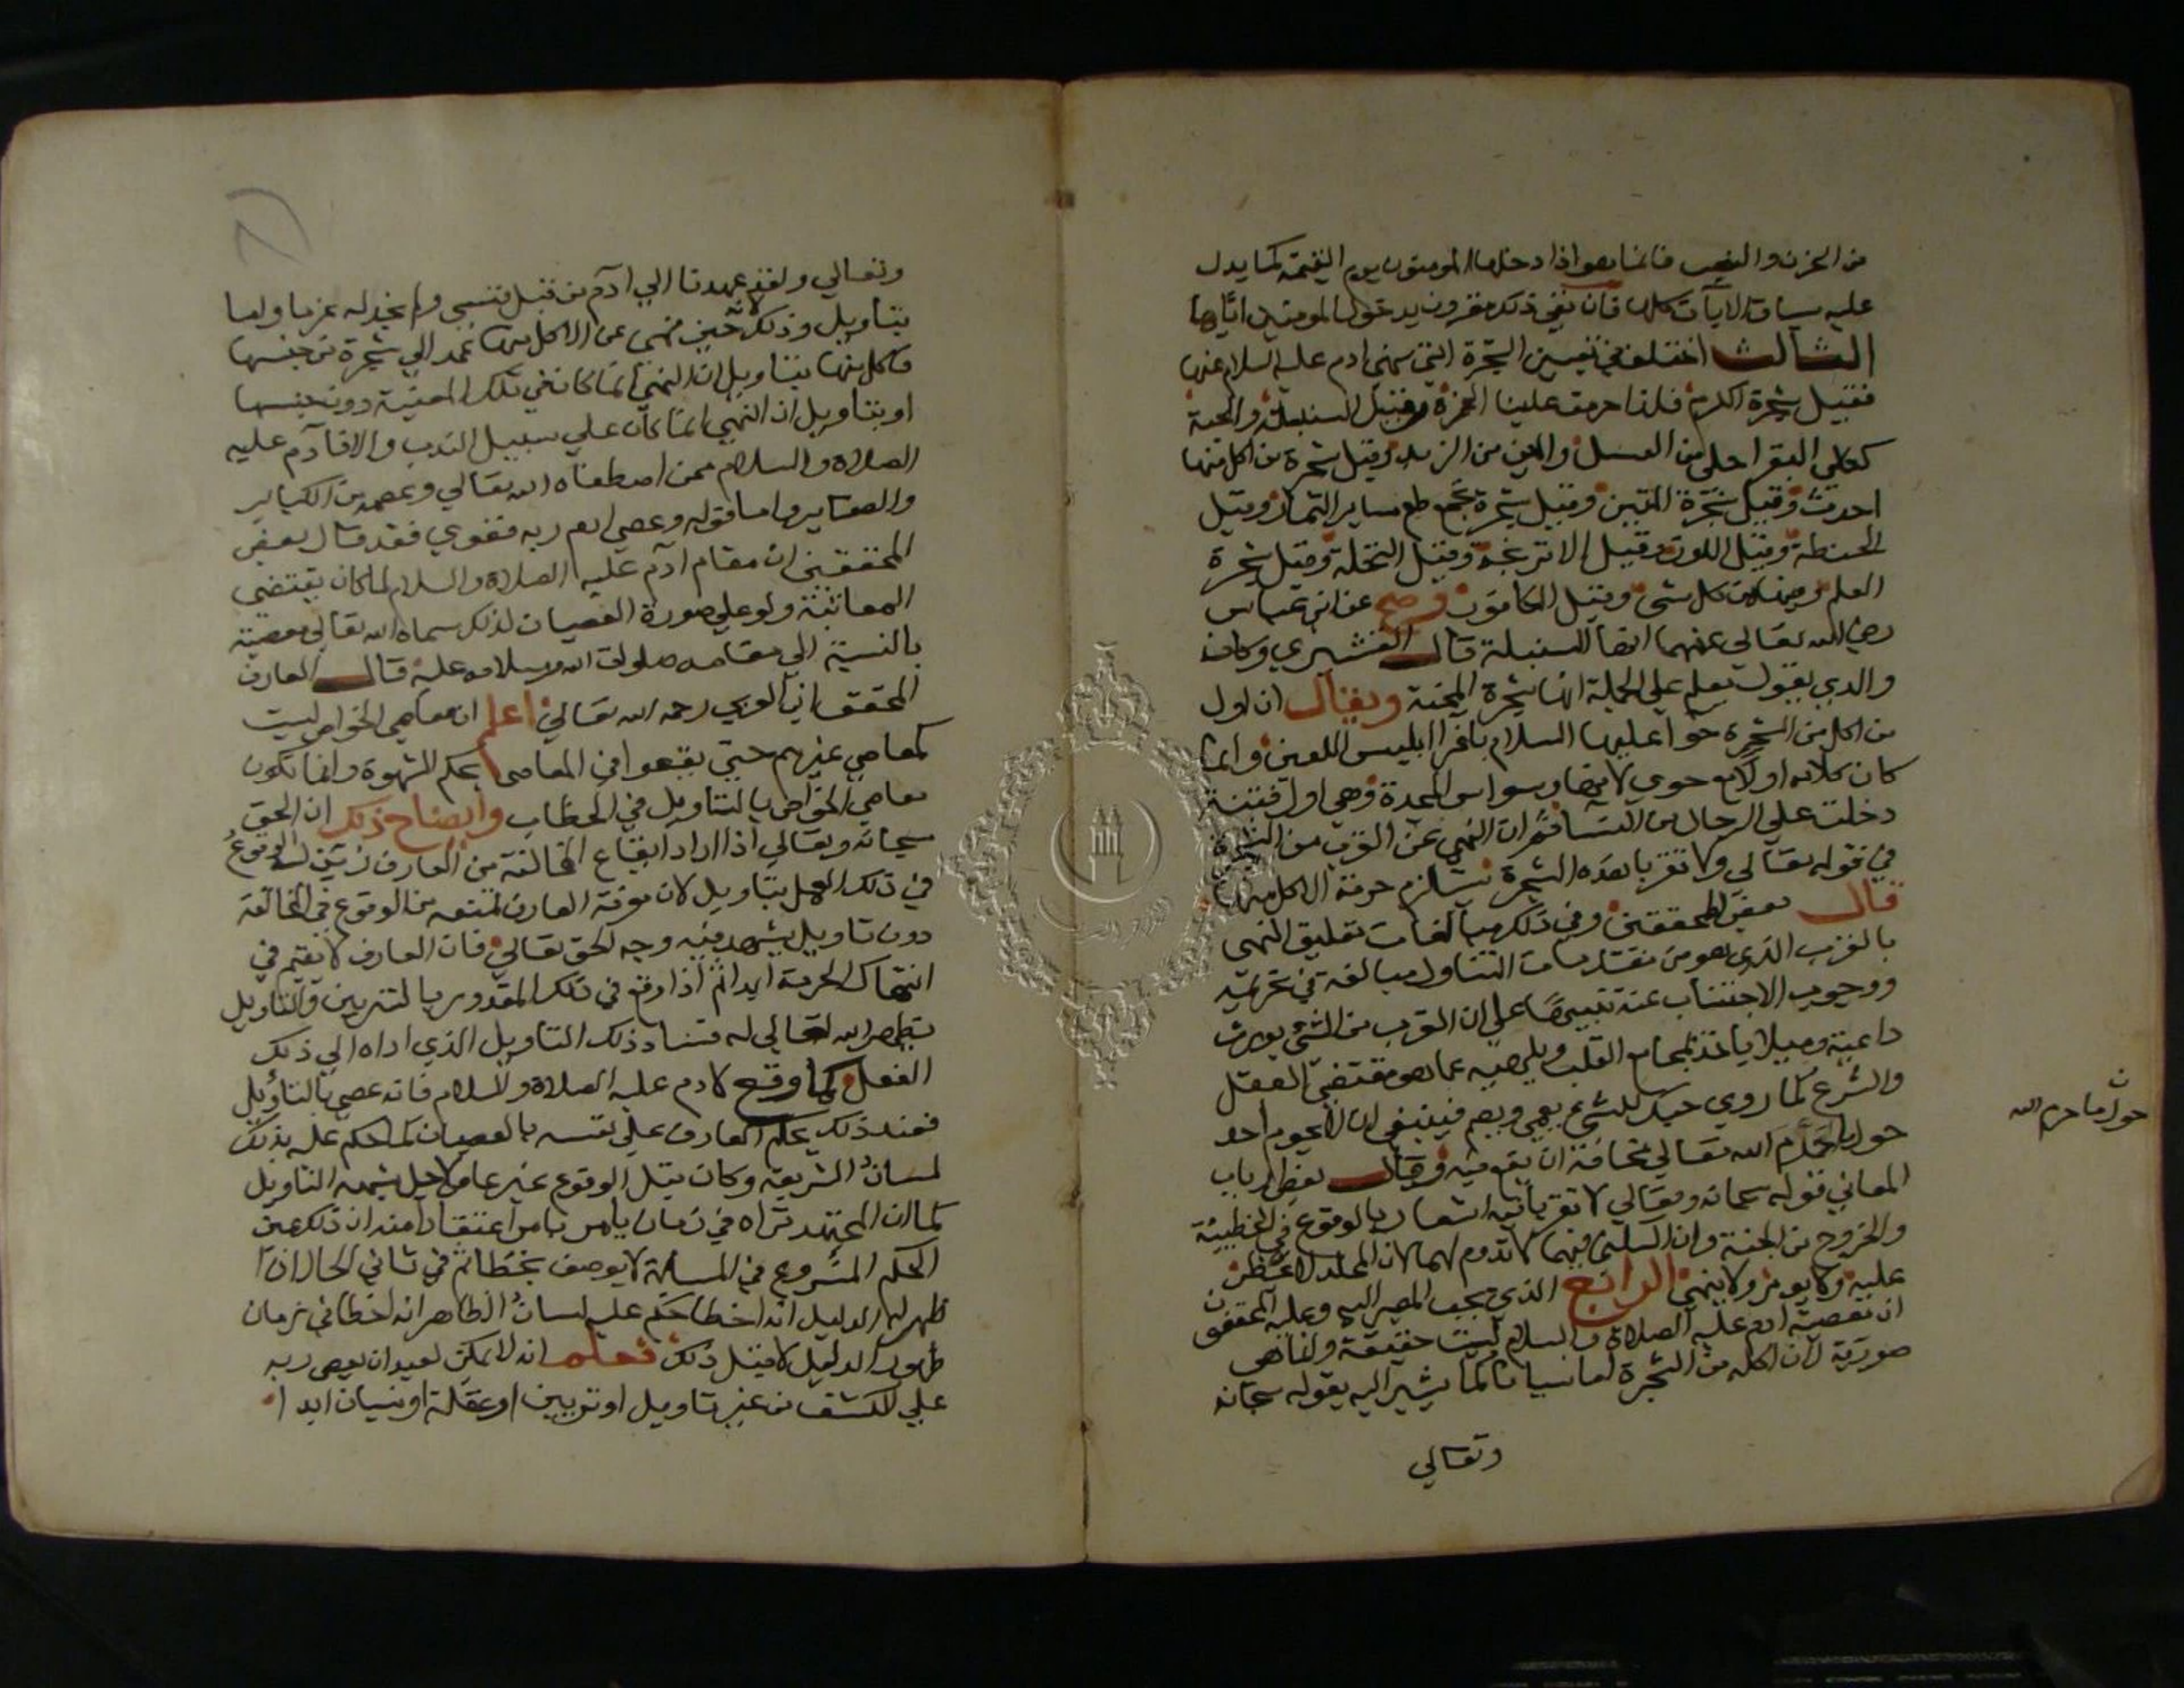 من الحزن والنصب فانما هو اذا دخلها المومنون يوم القيمة كما يدل
عليه سياق الايات كلها فان نفي ذلك مقرون بدخول المومنين اياها
الثالث اختلف في تعيين الشجرة التي نهي ادم عليه السلام عنها
فقيل شجرة الكرم فلذا حرمت علينا الخمرة وقيل السنبلة والحبة
ككلي البقر احلي من العسل والين من الزبد وقيل شجرة من اكل منها
احدث وقيل شجرة التين وقيل شجرة تجمع طعم ساير الثمار وقيل
الحنطة وقيل اللوز وقيل الاترنجة وقيل النخلة وقيل شجرة
العلم وفيها من كل شي وقيل الكافور وصح عن ابن عباس
رضي الله تعالي عنهما انها السنبلة قال القشيري وكان
والدي يقول نعلم علي الجملة انها شجرة المحنة ويقال ان اول
من اكل من الشجرة حوا عليها السلام باغرا ابليس اللعين وانما
كان كلامه اولا مع حوي لانها وسواس المخدة وهي اول فتنة
دخلت علي الرجال من النسا ثم ان النهي عن القرب من الشجرة
في قوله تعالي ولا تقربا هذه الشجرة يستلزم حرمة الاكل منها
قال بعض المحققين وفي ذلك مبالغات تعليق النهي
بالقرب الذي هو من مقدمات التناول مبالغة في تحريمه
ووجوب الاجتناب عنه تنبيها علي ان القرب من الشي يورث
داعية وميلا ياخذ بمجامع القلب ويلهيه عما هو مقتضي العقل
والشرع كما روي حبك للشي يعمي ويصم فينبغي ان لا يحوم احد
حول ما حرم الله تعالي مخافة ان يقع فيه وقال بعض ارباب
المعاني قوله سبحانه وتعالي لا تقربا فيه اشعار بالوقوع في الخطيئة
والخروج من الجنة وان السكني فيها لا تدوم لهما لان المخلد لا يحظر
عليه ولا يومر ولا ينهي الرابع الذي يجب المصير اليه وعليه المحققون
ان معصية ادم عليه الصلاة والسلام ليست حقيقة وانما هي
صورية لان اكله من الشجرة اما نسيانا كما يشير اليه بقوله سبحانه
وتعالي
حول ما حرم الله
وتعالي ولقد عهدنا الي ادم من قبل فنسي ولم نجد له عزما واما
بتاويل وذلك حين نهي عن الاكل منها عمد الي شجرة من جنسها
فاكل منها بتاويل ان النهي انما كان في تلك المعينة دون جنسها
او بتاويل ان النهي انما كان علي سبيل الندب والا فادم عليه
الصلاة والسلام ممن اصطفاه الله تعالي وعصمه من الكباير
والصغاير واما قوله وعصي ادم ربه فغوي فقد قال بعض
المحققين ان مقام ادم عليه الصلاة والسلام لما كان يقتضي
المعاتبة ولو علي صورة العصيان لذلك سماه الله تعالي معصية
بالنسبة الي مقامه صلوات الله وسلامه عليه قال العارف
المحقق ابن العربي رحمه الله تعالي اعلم ان معاصي الخواص ليست
كمعاصي غيرهم حتي يقعوا في المعاصي بحكم الشهوة وانما تكون
معاصي الخواص بالتاويل في الخطاب وايضاح ذلك ان الحق
سبحانه وتعالي اذا اراد ايقاع المخالفة من العارف زين له الوقوع
في ذلك العمل بتاويل لان معرفة العارف تمنعه من الوقوع في المخالفة
دون تاويل يشهد فيه وجه الحق تعالي فان العارف لا يقع في
انتهاك الحرمة ابدا ثم اذا وقع في تلك المقدور بالتزيين والتاويل
يظهر الله تعالي له فساد ذلك التاويل الذي اداه الي ذلك
الفعل كما وقع لادم عليه الصلاة والسلام فانه عصي بالتاويل
فعند ذلك يحكم العارف علي نفسه بالعصيان كما حكم عليه بذلك
لسان الشريعة وكان قبل الوقوع غير عاص لاجل شبهة التاويل
كما ان المجتهد تراه في زمان يامر بامر اعتقادا منه ان ذلك عين
الحكم المشروع في المسالة لا يوصف بخطا ثم في ثاني الحال اذا
ظهر له الدليل انه اخطا حكم عليه لسان الظاهر انه اخطا في زمان
ظهور الدليل لا قبل ذلك فعلم انه لا يمكن لعبد ان يعصي ربه
علي الكشف من غير تاويل او تزيين او غفلة او نسيان ابدا